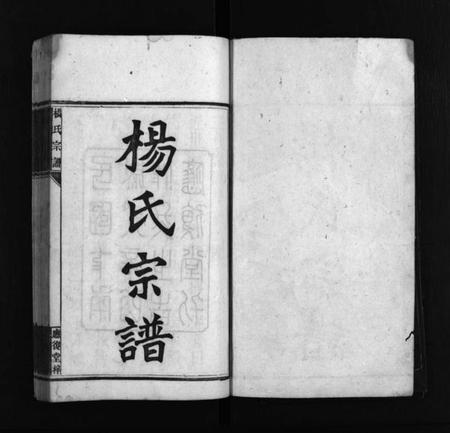 楊氏宗譜
楊氏宗譜
應復堂梓